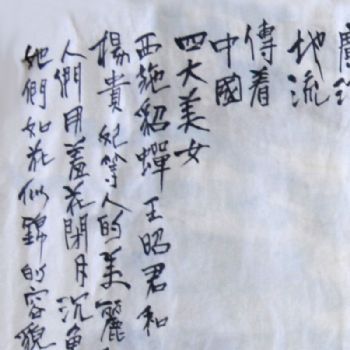 廣
地流
傳着
中國
四大美女
西施貂蟬王昭君和
楊貴妃等人的美麗
人們用羞花閉月沉魚
她們如花似錦的容貌